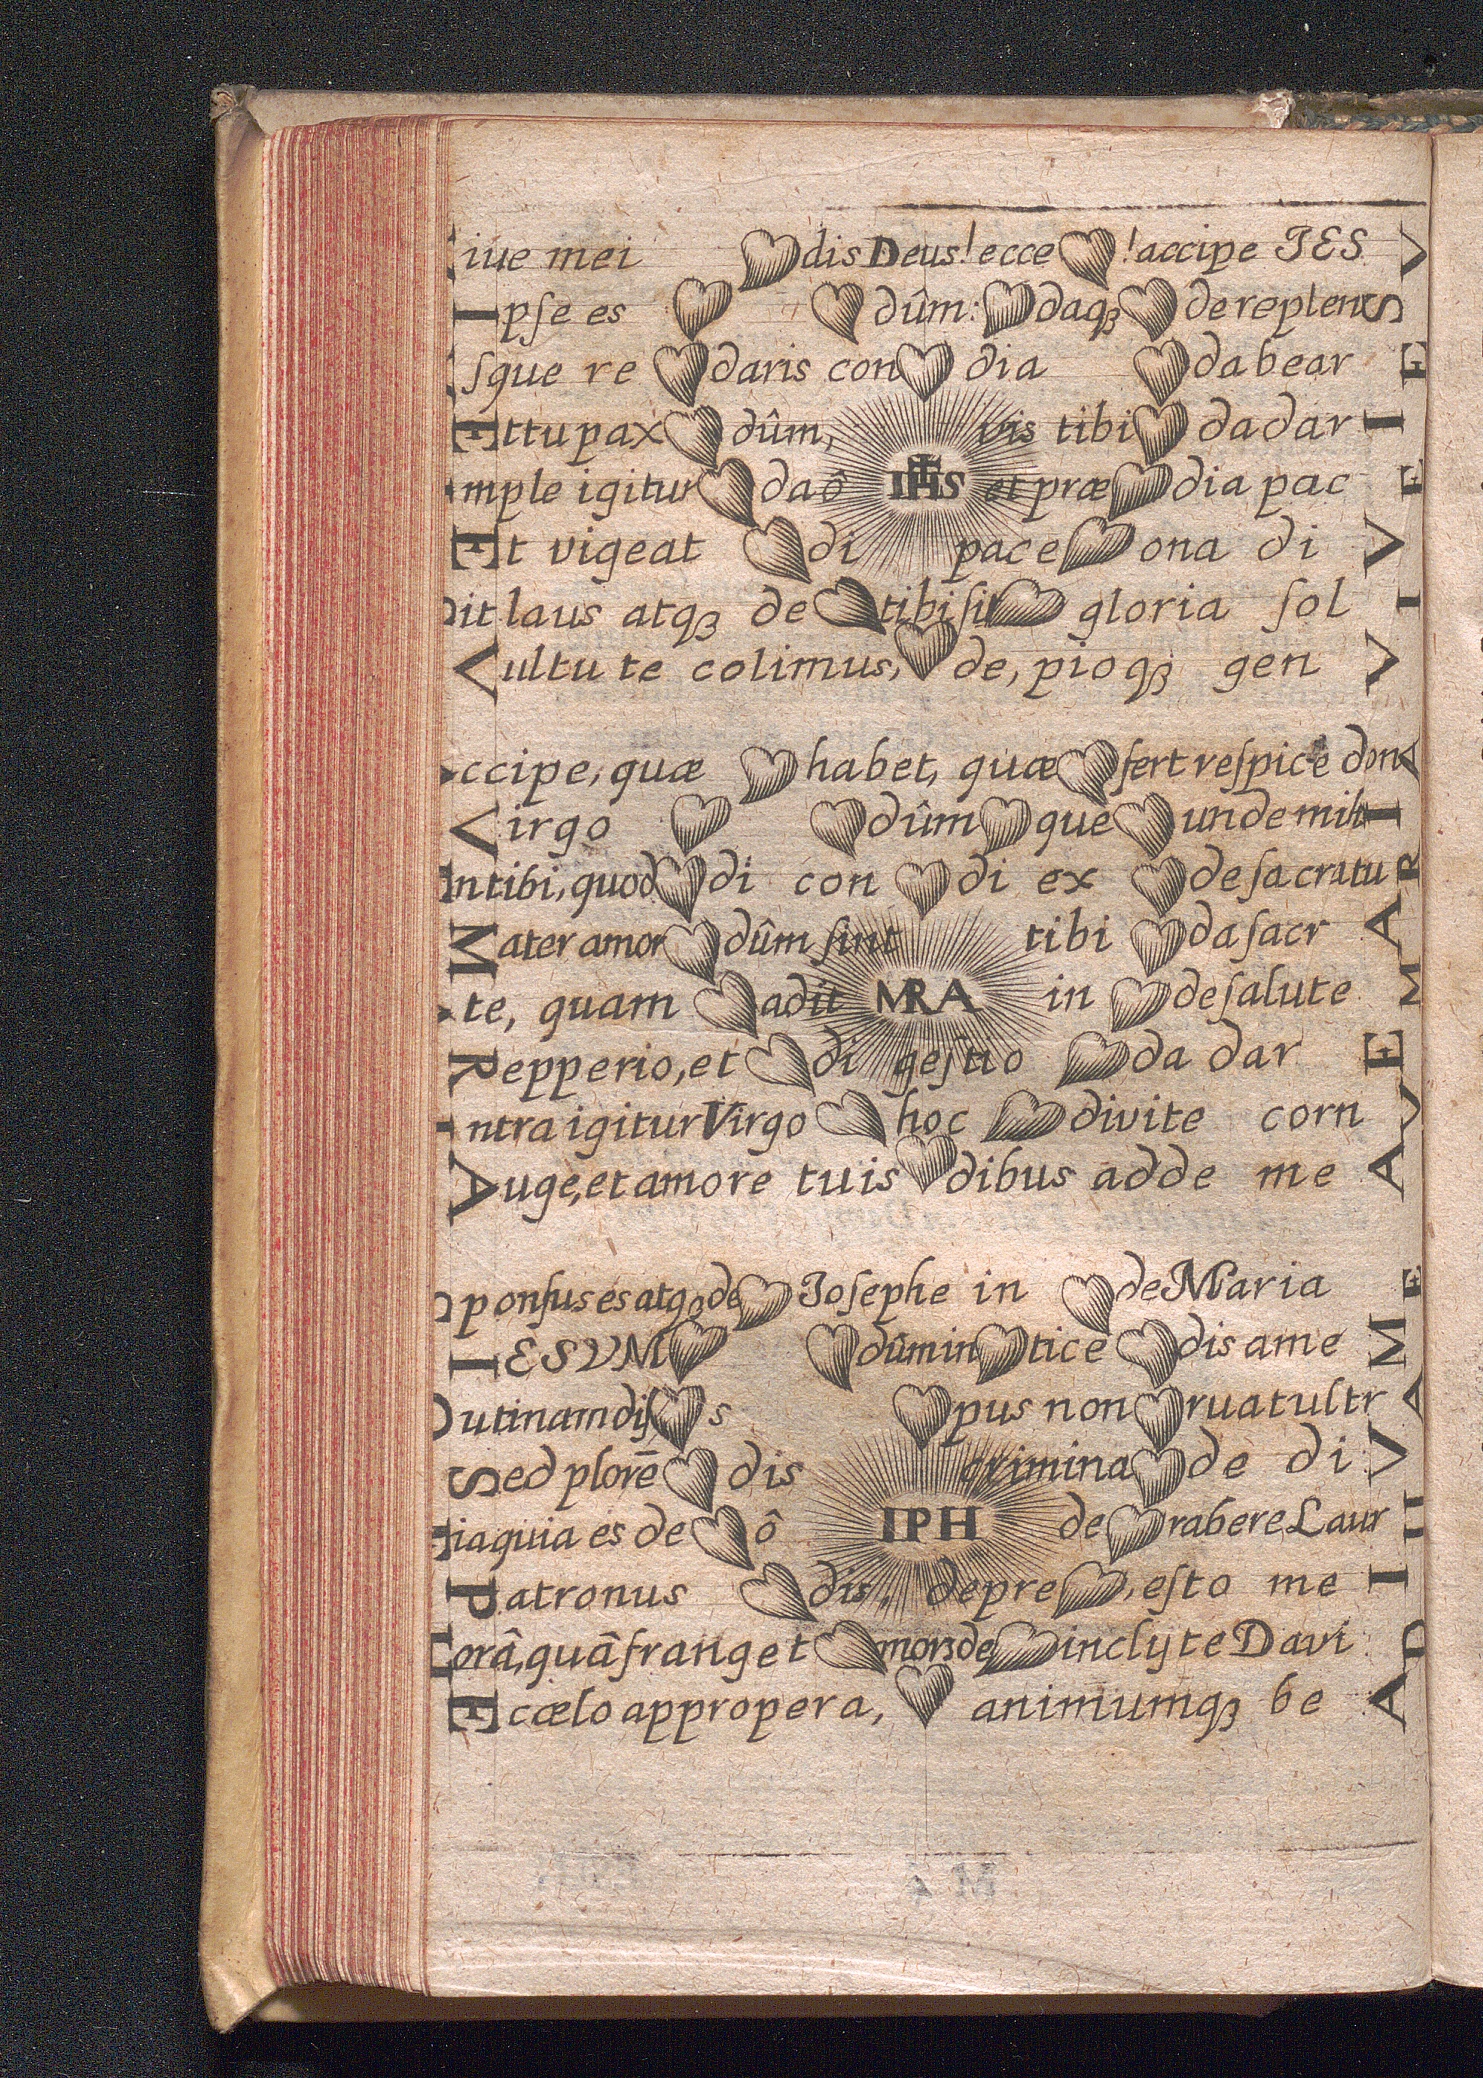 iue mei dis Deus! ecce ! accipe IES V
Ipſe es dûm: daqꝫ de replent S
ſque re daris con dia da bear E
Et tu pax dûm, vis tibi da dar I
mple igitur da ô IHS et præ dia pac E
Et vigeat di pace ona di V
it laus atqꝫ de tibi ſit gloria ſol I
Vultu te colimus, de, pioqꝫ gen V
ccipe, quæ habet, quæ fert reſpice don A
Virgo dûm que unde mih I
In tibi, quod di con di ex de ſacratu R
Mater amor dûm ſint tibi da ſacr A
te, quam adit MRA in de ſalute M
Repperio, et di geſtio da dar E
Intra igitur Virgo hoc divite corn V
Auge, et amore tuis dibus adde me A
ponſus es atqꝫ de Ioſephe in de Maria E
IESVM dûm in tice dis ame M
O utinam diſ s pus non ruat ultr A
Sed plorē dis crimina de di V
Eia quia es de ô IPH de rabere Laur
Patronus dis, depre, eſto me I
Horâ, quâ franget mors de inclyte Davi D
E cælo appropera, animumqꝫ be A